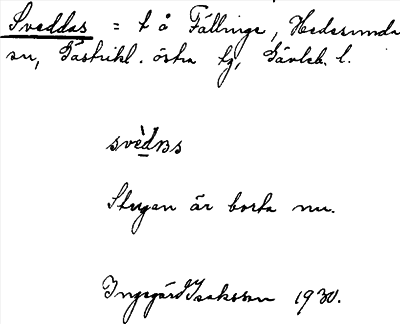 Sveddas = t å Fällinge, Hedesunda
sn, Gästrikl. östra tg, Gävleb. l.
svèdɐs
Stugan är borta nu.
Ingegärd Isaksson 1930.